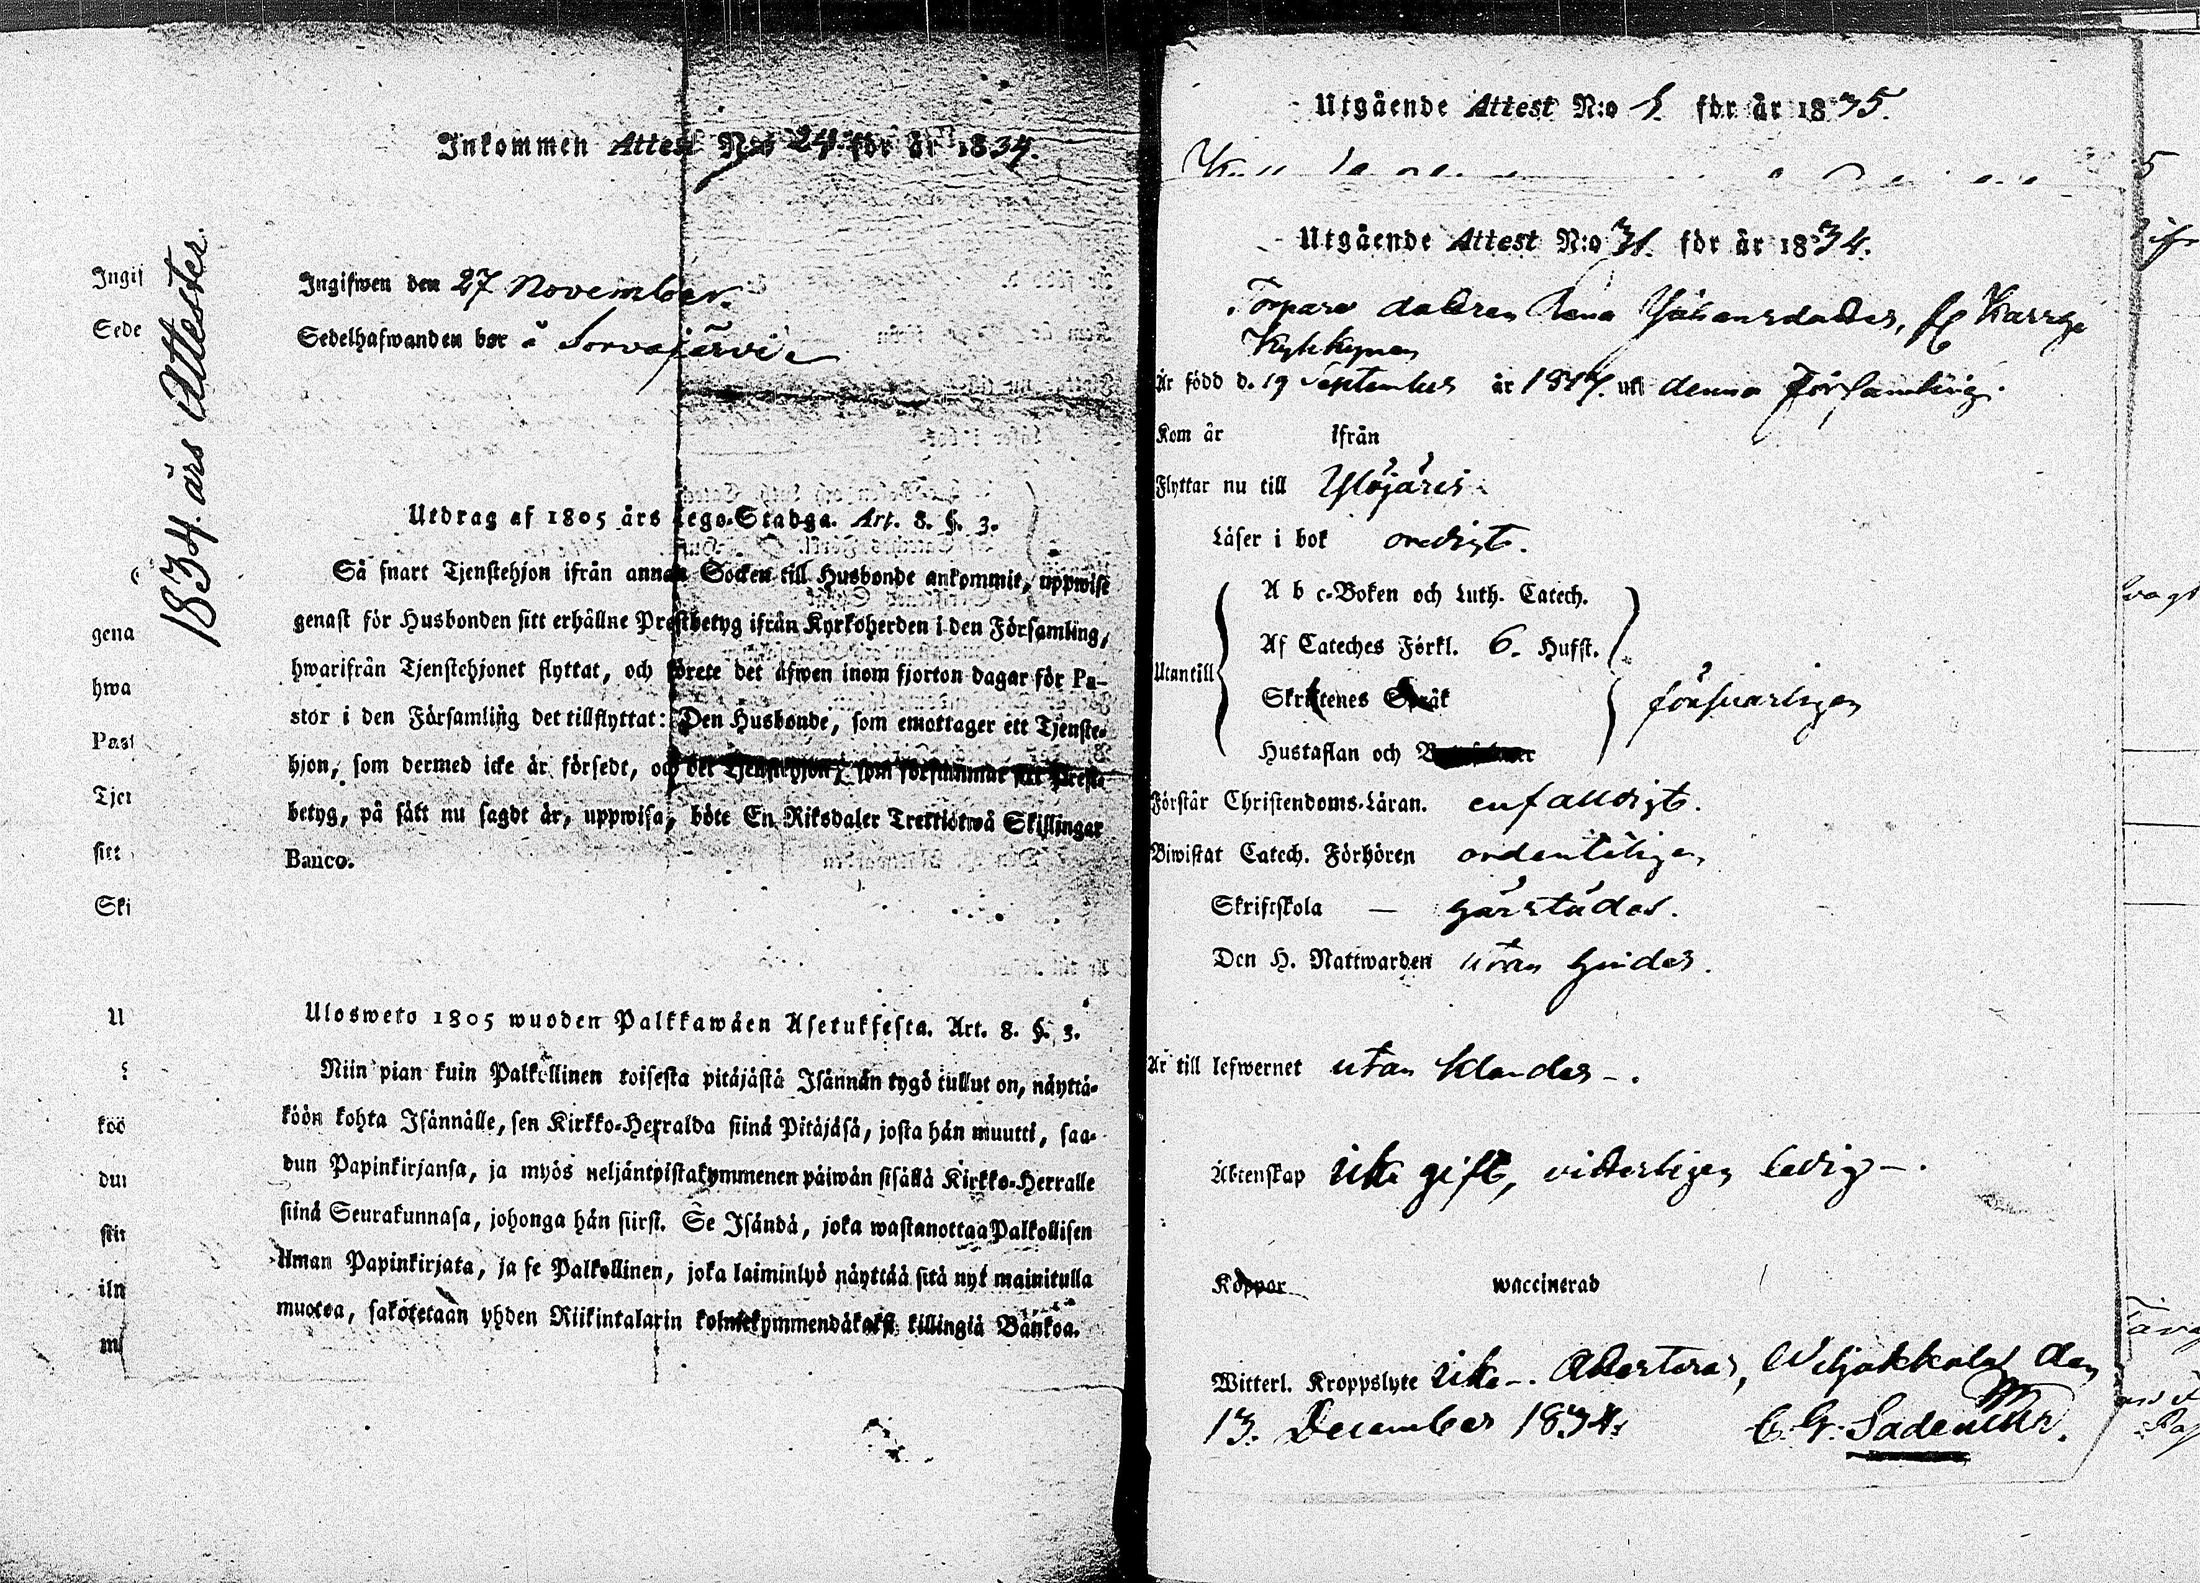 Inkommen Attest N:o 24. för år 1834.
1834 års Attester.
Ingifwen den 27 November.
Sedelhafwanden bor å Sorvajärvi
Utdrag af 1805 års Lego-Stadga. Art. 8. §. 3.
Så snart Tjenstehjon ifrån annan Socken till Husbonde ankommit, uppwise
genast för Husbonden sitt erhållne Prestbetyg ifrån Kyrkoherden i den Församling,
hwarifrån Tjenstehjonet flyttat, och förete det äfwen inom fjorton dagar för Pa-
stor i den Församling det tillflyttat: Den Husbonde, som emottager ett Tjenste-
hjon, som dermed icke är försedt, och det Tjenstehjon, som försummar sitt Preste-
betyg, på sätt nu sagdt är, uppwisa, böte En Riksdaler Trettiotwå Skillingar
Banco.
Ulosweto 1805 wuoden Palkkawäen Asetuksesta. Art. 8. §. 3.
Niin pian kuin Palkollinen toisesta pitäjästä Isännän tygö tullut on, näyttä-
köön kohta Isännälle, sen Kirkko-Herralda siinä Pitäjäsä, josta hän muutti, saa-
dun Papinkirjansa, ja myös neljäntoistakymmenen päiwän sisällä Kirkko-Herralle
siinä Seurakunnasa, johonga hän siirsi. Se Isändä, joka wastanottaa Palkollisen
ilman Papinkirjata, ja se Palkollinen, joka laiminlyö näyttää sitä nyt mainitulla
muotoa, sakotetaan yhden Riikintalarin kolmekymmendäkaksi killingiä Bankoa.
Ingif
Sede
gena
hwa
Past
Tjen
sitt
Ski
U
köö
dun
siin
ilm
m
Utgående Attest N:o 1. för år 1835.
Utgående Attest N:o 31. för år 1834.
Torpare dottren Lena Johansdotter, fr Karrge
Kyhkynen
Är född d. 19 September år 1817. uti denna Församling.
Kom år ifrån
Flyttar nu till Ylöjärvi
Läser i bok oredigt.
A b c-Boken och Luth. Catech.
Af Cateches Förkl. 6. Hufst.
Utantill
Skriftenes Språk
försvarligen
Hustaflan och
Förstår Christendoms-Läran. enfalldigt.
Biwistat Catech. Förhören ordenteligen
Skriftskola —
Den H. Nattwarden utan hinder.
Är till lefwernet utan klander.
Äktenskap icke gift, vitterligen ledig.
Koppor waccinerad
Witterl. Kroppslyte icke. Attesteras, Wiljakkala den
13. December 1834.